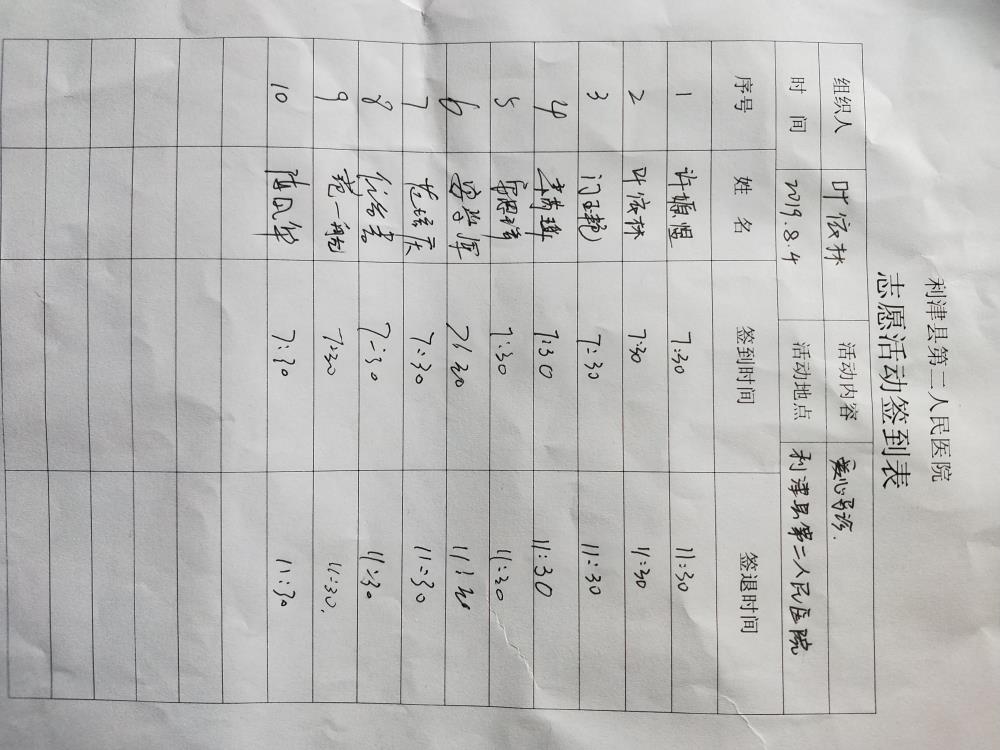 利津县第二人民医院
志愿活动签到表
组织人 叶依林 活动内容 爱心导诊.
时间 2019.8.4 活动地点 利津县第二人民医院
序号 姓名 签到时间 签退时间
1 7:30 11:30
2 叶依林 7:30 11:30
3 门玉艳 7:30 11:30
4 7:30 11:30
5 7:30 11:30
6 7:30 11:30
7 7:30 11:30
8 7:30 11:30
9 7:30 11:30.
10 7:30 11:30